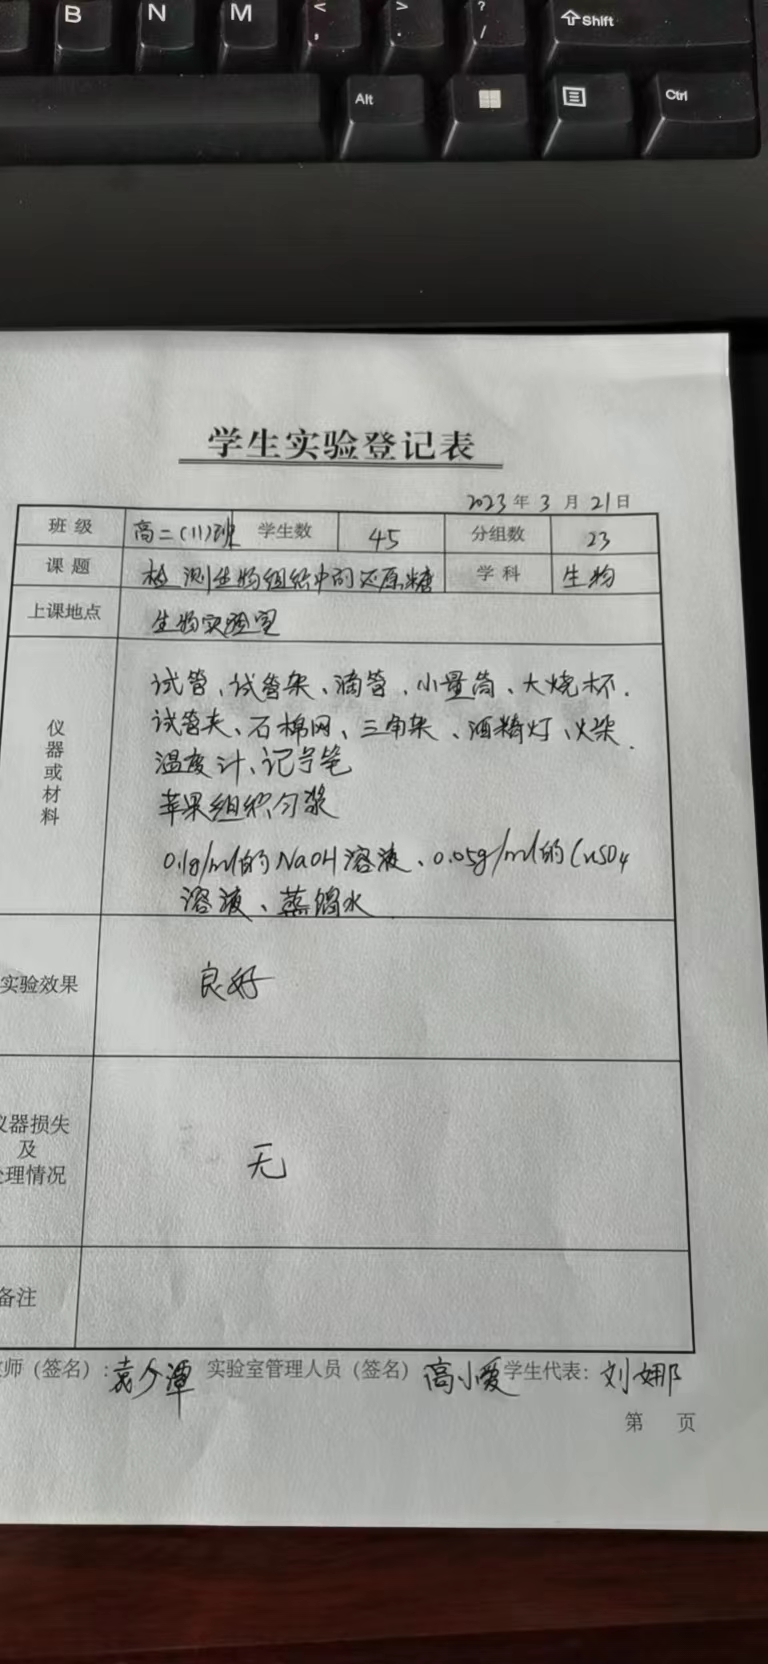 B N M < , > . ? / Shift
Alt Ctrl
学生实验登记表
2023年3月21日
班级 高二(11)班 学生数 45 分组数 23
课题 检测生物组织中的还原糖 学科 生物
上课地点 生物实验室
仪器或材料
试管、试管架、滴管、小量筒、大烧杯.
试管夹、石棉网、三角架、酒精灯、火柴.
温度计、记号笔
苹果组织匀浆
0.1g/ml的NaOH溶液、0.05g/ml的CuSO4
溶液、蒸馏水
实验效果 良好
仪器损失
及
处理情况
无
备注
师(签名): 袁 潭 实验室管理人员(签名) 高小爱 学生代表: 刘娜
第 页